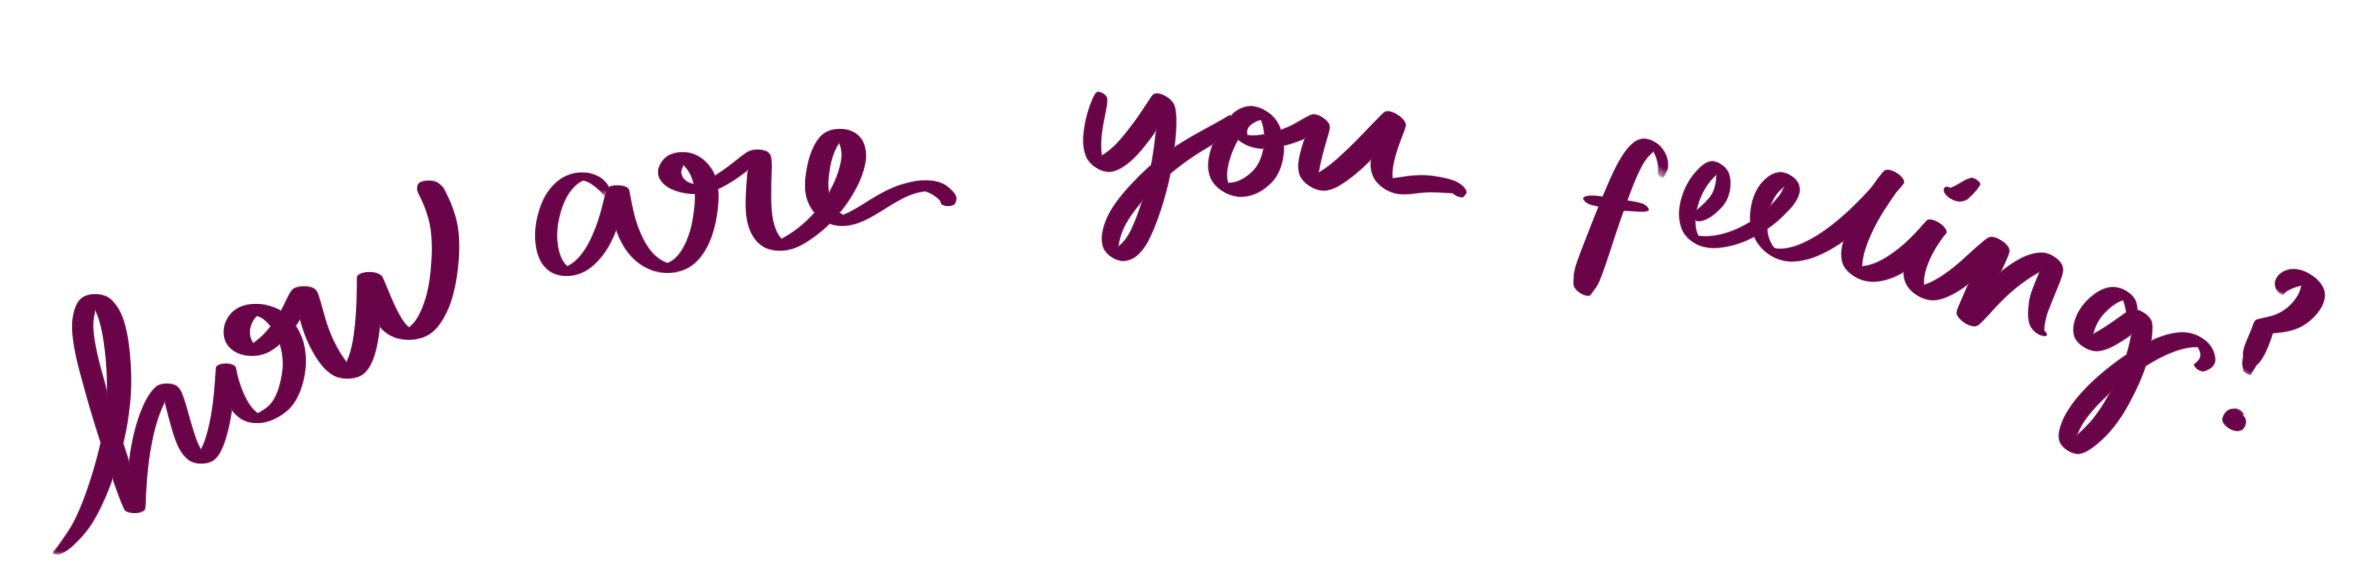 how are you feeling?